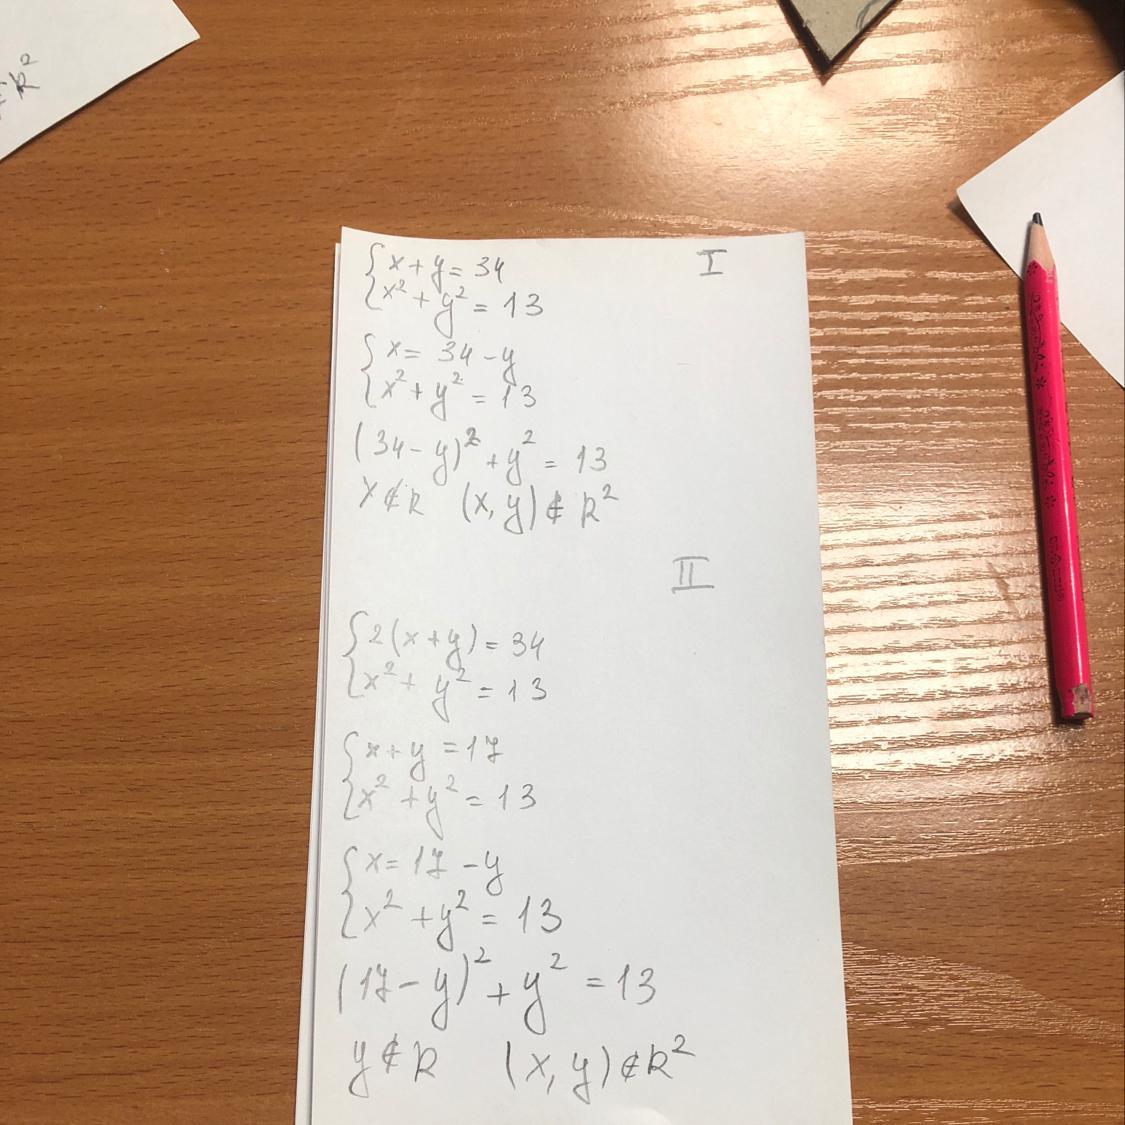 R²
{x + y = 34
{x² + y² = 13
I
{x = 34 - y
{x² + y² = 13
(34 - y)² + y² = 13
x ∉ R (x, y) ∉ R²
II
{2(x + y) = 34
{x² + y² = 13
{x + y = 17
{x² + y² = 13
{x = 17 - y
{x² + y² = 13
(17 - y)² + y² = 13
y ∉ R (x, y) ∉ R²